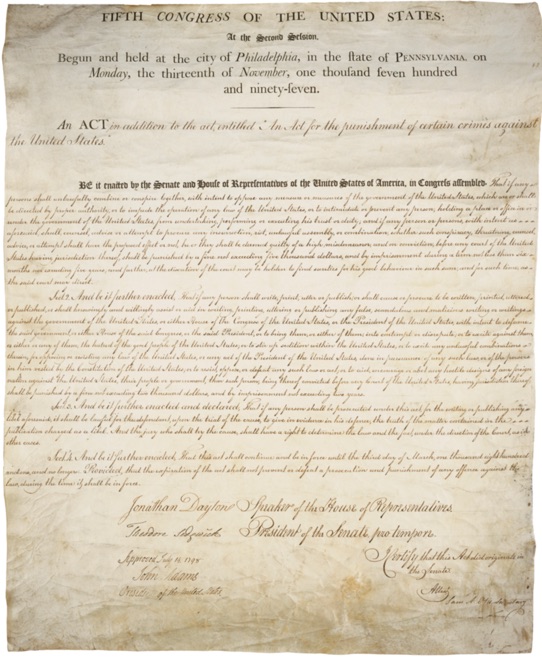 FIFTH CONGRESS OF THE UNITED STATES:
At the Second Session,
Begun and held at the city of Philadelphia, in the ſtate of PENNSYLVANIA, on
Monday, the thirteenth of November, one thouſand ſeven hundred
and ninety-ſeven.
An ACT in addition to the act, entitled "An Act for the punishment of certain crimes against
the United States.
BE it enacted by the Senate and House of Representatives of the United States of America, in Congress assembled. That if any
persons shall unlawfully combine or conspire together, with intent to oppose any measure or measures of the government of the United States, which are or shall
be directed by proper authority, or to impede the operation of any law of the United States, or to intimidate or prevent any person, holding a place or office in or
under the government of the United States, from undertaking, performing or executing his trust or duty; and if any person or persons, with intent as
aforesaid, shall counsel, advise or attempt to procure any insurrection, riot, unlawful assembly, or combination, whether such conspiracy, threatening, counsel,
advice, or attempt shall have the proposed effect or not, he or they shall be deemed guilty of a high misdemeanor, and on conviction, before any court of the United
States having jurisdiction thereof, shall be punished by a fine not exceeding five thousand dollars, and by imprisonment during a term not less than six
months nor exceeding five years; and further, at the discretion of the court may be holden to find sureties for his good behaviour in such sum, and for such time, as
the said court may direct.
Sect. 2. And be it further enacted, That if any person shall write, print, utter or publish, or shall cause or procure to be written, printed, uttered
or published, or shall knowingly and willingly assist or aid in writing, printing, uttering or publishing any false, scandalous and malicious writing or writings
against the government of the United States, or either House of the Congress of the United States, or the President of the United States, with intent to defame
the said government, or either House of the said Congress, or the said President, or to bring them, or either of them, into contempt or disrepute; or to excite against them,
or either or any of them, the hatred of the good people of the United States, or to stir up sedition within the United States, or to excite any unlawful combinations
therein, for opposing or resisting any law of the United States, or any act of the President of the United States, done in pursuance of any such law, or of the powers
in him vested by the Constitution of the United States, or to resist, oppose, or defeat any such law or act, or to aid, encourage or abet any hostile designs of any foreign
nation against the United States, their people or government, then such person, being thereof convicted before any court of the United States having jurisdiction thereof,
shall be punished by a fine not exceeding two thousand dollars, and by imprisonment not exceeding two years.
Sect. 3. And be it further enacted and declared, That if any person shall be prosecuted under this act, for the writing or publishing any
libel aforesaid, it shall be lawful for the defendant, upon the trial of the cause, to give in evidence in his defence, the truth of the matter contained in the
publication charged as a libel. And the jury who shall try the cause, shall have a right to determine the law and the fact, under the direction of the court, as in
other cases.
Sect. 4. And be it further enacted, That this act shall continue and be in force until the third day of March, one thousand eight hundred
and one, and no longer: Provided, that the expiration of the act shall not prevent or defeat a prosecution and punishment of any offence against the
law, during the time it shall be in force.
Jonathan Dayton Speaker of the House of Representatives.
Theodore Sedgwick President of the Senate, pro tempore.
Approved July 14, 1798
John Adams
President of the United States.
I Certify that this Act did originate in
the Senate.
Attest,
Secretary